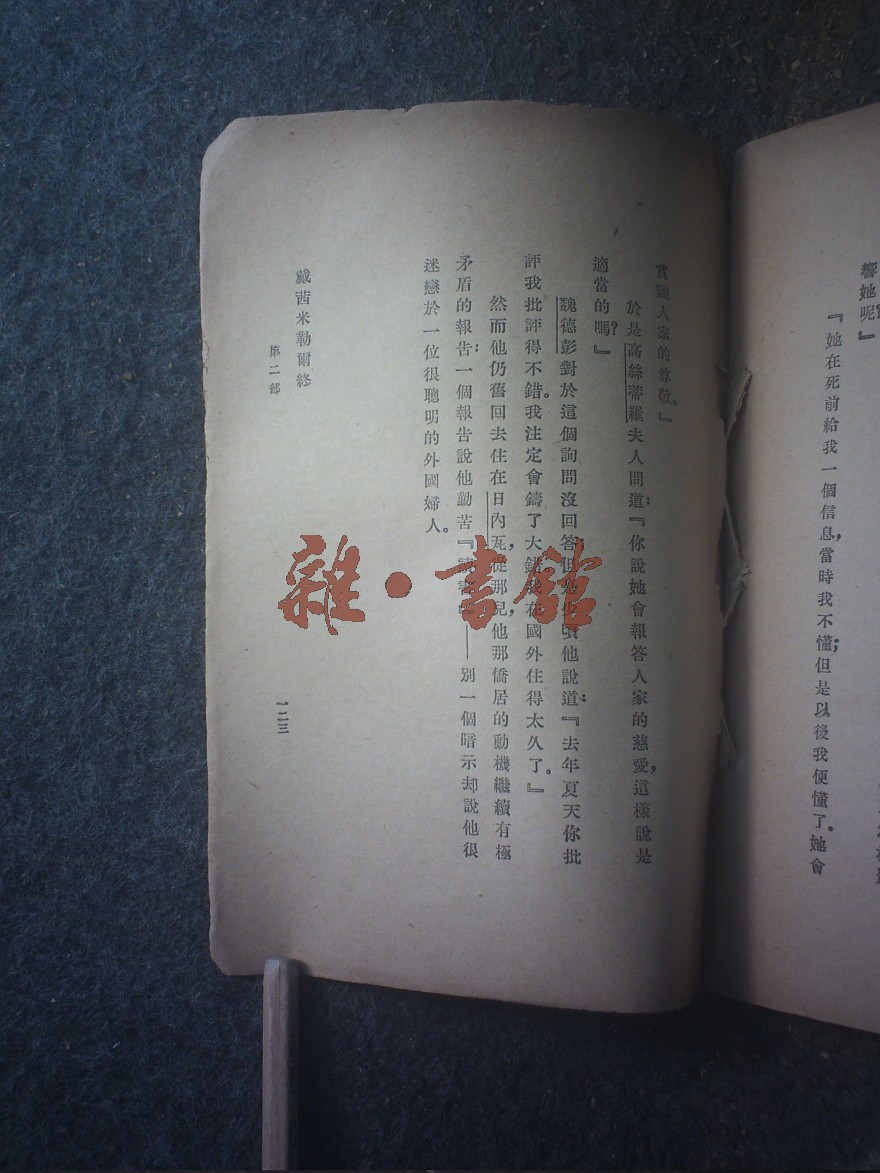 響她呢？』
『她在死前給我一個信息，當時我不懂；但是以後我便懂了。她會
賞識人家的尊敬。』
於是高絲蒂羅夫人問道：『你說她會報答人家的慈愛，這樣說是
適當的嗎？』
魏德彭對於這個詢問沒回答；但是少頃他說道：『去年夏天你批
評我批評得不錯。我注定會鑄了大錯。我在國外住得太久了。』
然而他仍舊回去住在日內瓦，從那兒，他那僑居的動機繼續有極
矛盾的報告：一個報告說他勤苦『讀書』——別一個暗示却說他很
迷戀於一位很聰明的外國婦人。
戴茜米勒爾終
第二部
一二三
雜·書館